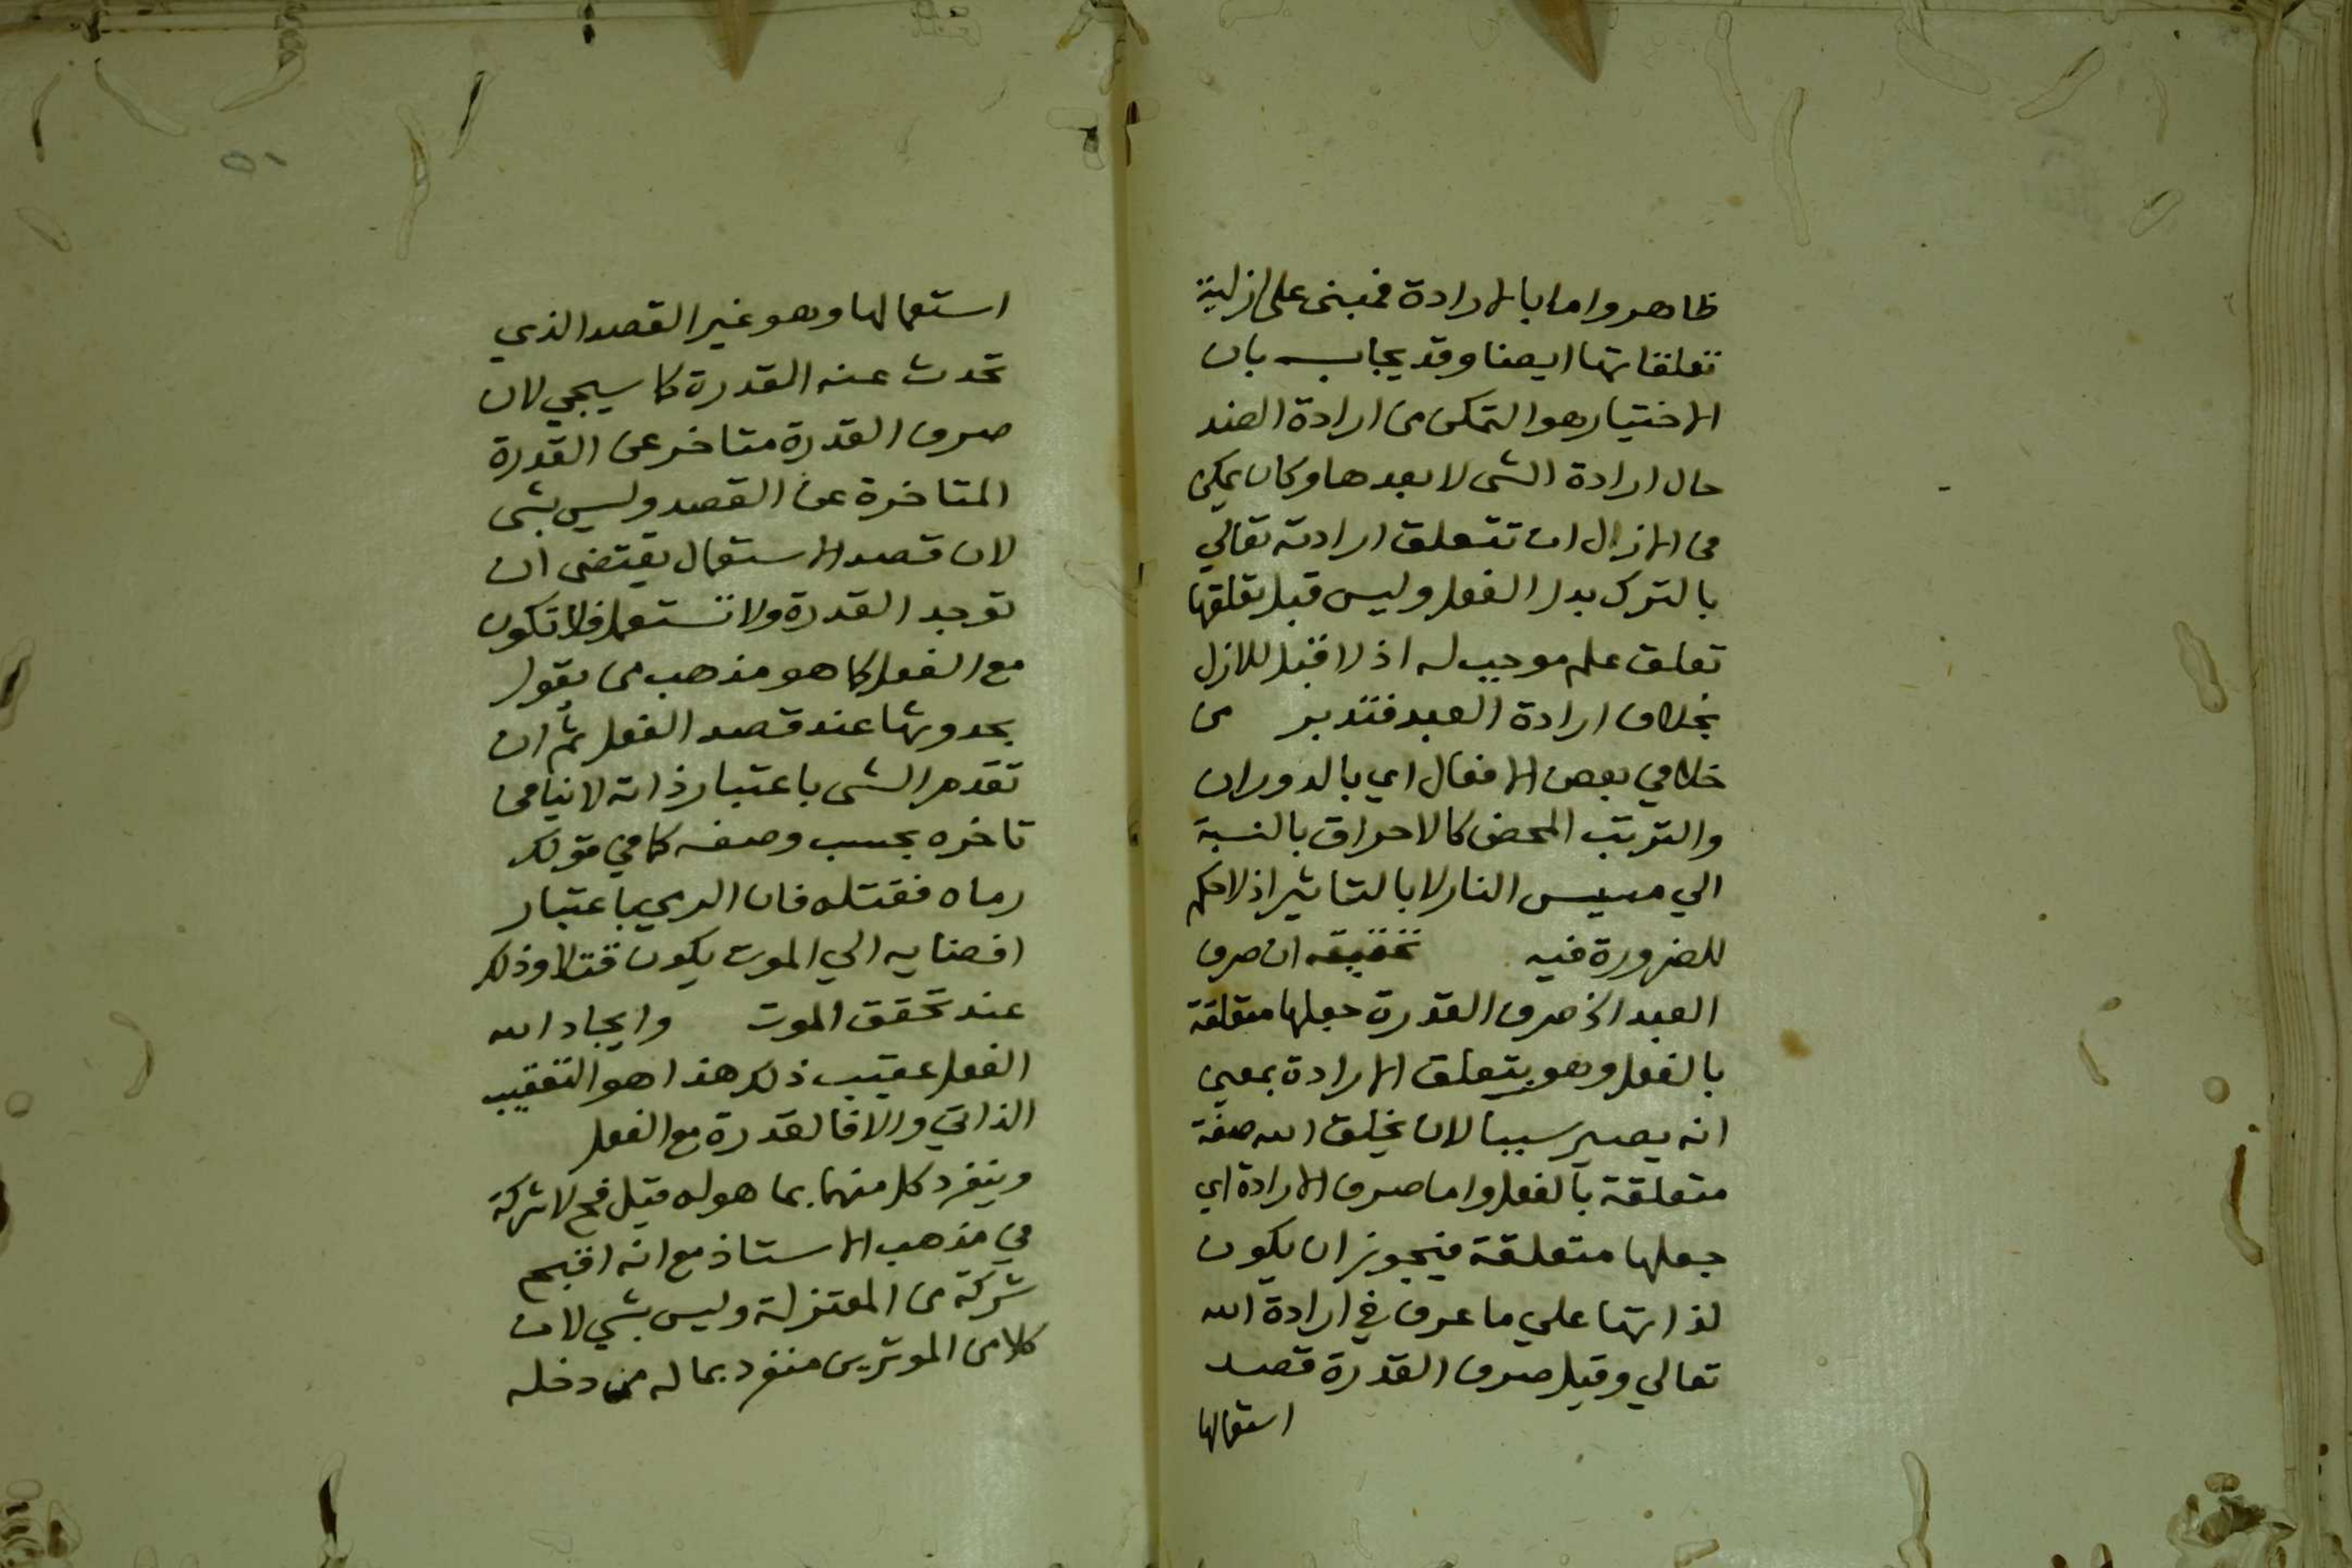 ظاهر واما بالارادة فمبنى على ازلية
تعلقاتها ايضا وقد يجاب بان
الاختيار هو التمكن من ارادة الضد
حال ارادة الشى لا بعدها وكان يمكن
فى الازل ان تتعلق ارادته تعالي
بالترك بدل الفعل وليس قبل تعلقها
تعلق علم موجب له اذ لا قبل للازل
بخلاف ارادة العبد فتدبر من
خلا في بعض الافعال اي بالدوران
والترتب المحض كالاحراق بالنسبة
الي مسيس النار لا بالتاثير اذ لا حكم
للضرورة فيه تحقيقه ان صرف
العبد الخ صرف القدرة جعلها متعلقة
بالفعل وهو بتعلق الارادة بمعني
انه يصير سببا لان يخلق الله صفة
متعلقة بالفعل واما صرف الارادة اي
جعلها متعلقة فيجوز ان يكون
لذاتها علي ما عرف في ارادة الله
تعالي وقيل صرف القدرة قصد
استعمالها
٥١
استعمالها وهو غير القصد الذي
تحدث عنه القدرة كما سيجي لان
صرف القدرة متاخر عن القدرة
المتاخرة عن القصد وليس بشى
لان قصد الاستعمال يقتضى ان
توجد القدرة ولا تستعمل فلا تكون
مع الفعل كما هو مذهب من يقول
بحدوثها عند قصد الفعل ثم ان
تقدم الشى باعتبار ذاته لا ينافى
تاخره بحسب وصفه كما في قولك
رماه فقتله فان الرمي باعتبار
افضايه الي الموت يكون قتلا وذلك
عند تحقق الموت وايجاد الله
الفعل عقيب ذلك هذا هو التعقيب
الذاتي والا فالقدرة مع الفعل
وينفرد كل منهما بما هو له قيل فح لا شركة
في مذهب الاستاذ مع انه اقبح
شركة من المعتزلة وليس بشي لان
كلا من الموثرين منفرد بما له من دخله